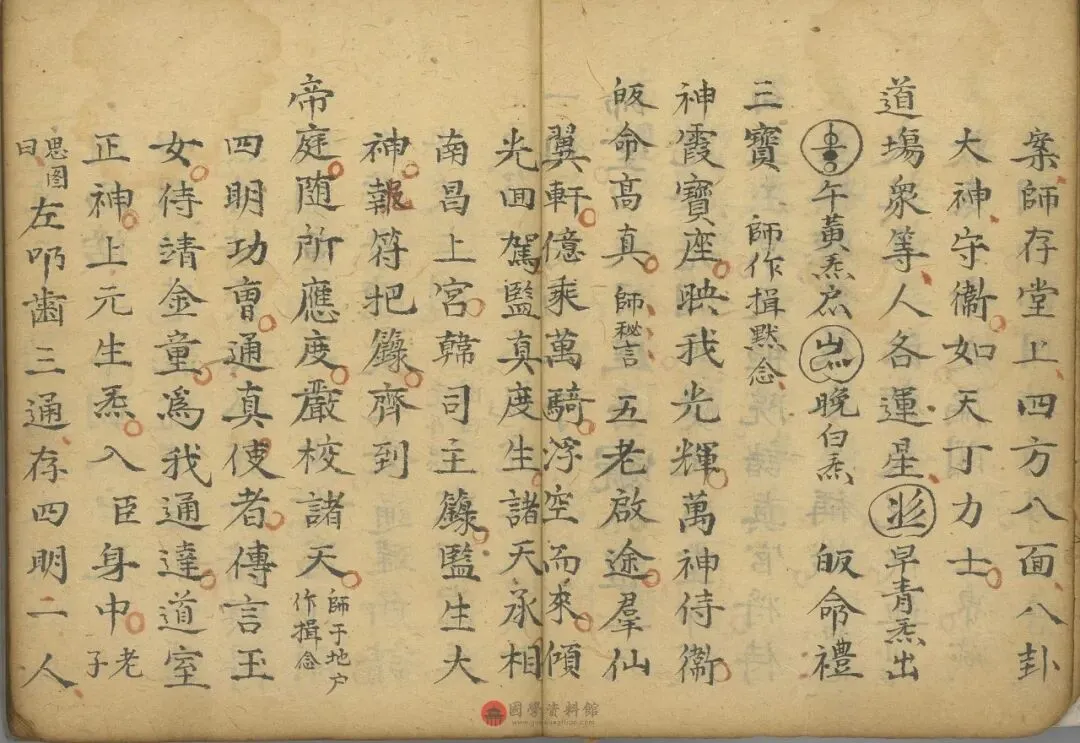 案師存堂上四方八面八卦
大神守衞如天丁力士
道場衆等人各運星 早青炁出
午黃炁 晚白炁 皈命禮
三寶 師作揖默念
神霞寶座映我光輝萬神侍衞
皈命高真 師秘言 五老啟途羣仙
翼軒億乘萬騎浮空而來傾
光囬駕監真度生諸天承相
南昌上宮韓司主籙監生大
神報符把籙齊到
帝庭随所應度嚴校諸天 師于地户作揖念
四明功曺通真使者傳言玉
女侍清金童為我通達道室
正神上元生炁入臣身中 老子
思图曰 左叩齒三通存四明二人
國學資料館